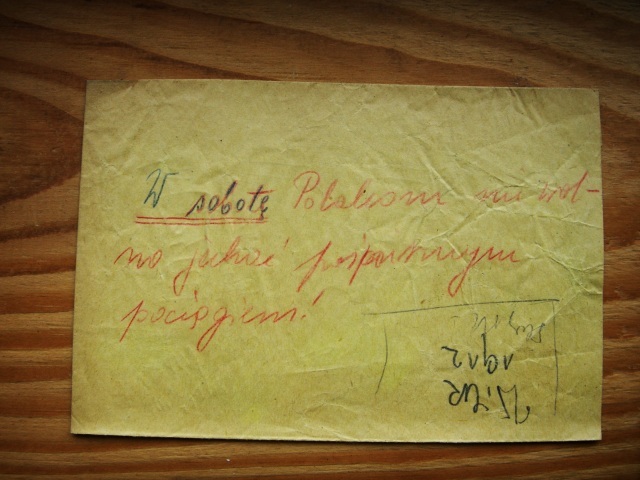 W sobotę Polakom nie wol-
no jechać pośpiesznym
pociągiem!